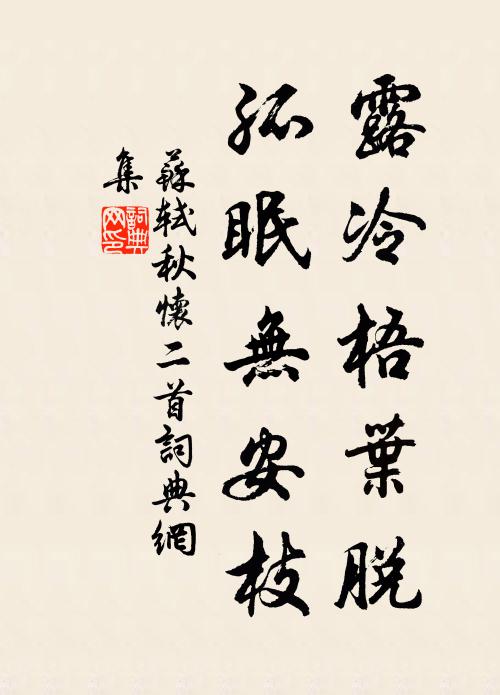 露冷梧葉脱
孤眠無安枝
蘇軾秋懷二首詞典網
集
詞典
网印